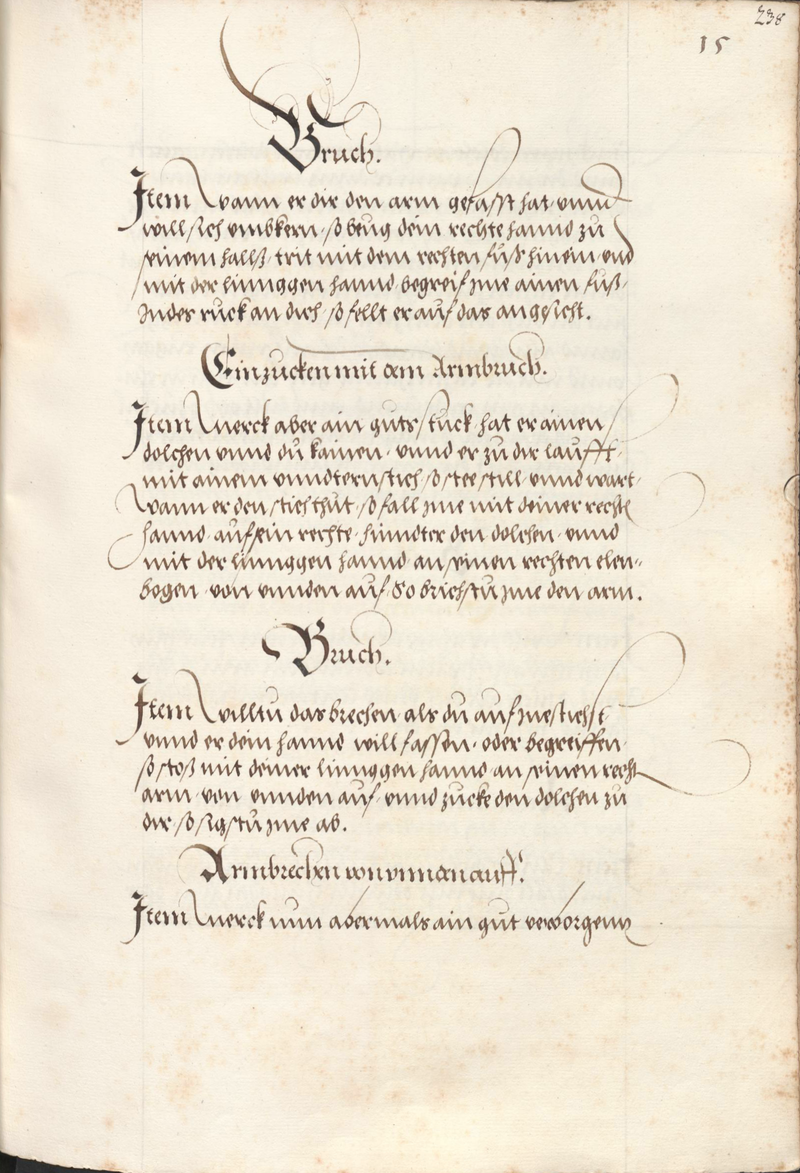 238
15
Bruch.
Item wann er dir den arm gefasst hat vnnd
will sich vmbkern so beug dein rechte hannd zu
seinem hallß trit mit dem rechten fuß hinein vnd
mit der linnggen hannd begreif jme ainen fuß
Jndes ruck an dich so fellt er auf das angesicht.
Einzucken mit dem Armbruch.
Item merck aber ain guts stuck hat er ainen
dolchen vnnd du kainen vnnd er zu dir laufft
mit ainem vnndternstich so stee still vnnd wart
wann er den stich thut so fall jme mit deiner rechten
hannd auf sein rechte hinndter den dolchen vnnd
mit der linnggen hannd an seinen rechten elen-
bogen von vnnden auf So brichstu jme den arm.
Bruch.
Item willtu das brechen als du auf jne stichst
vnnd er dein hannd will fassen oder begreiffen
so stoß mit deiner linnggen hannd an seinen recht
arm von vnnden auf vnnd zucke den dolchen zu
dir so sigstu jme ab.
Armbrechen von vnnden auff.
Item merck nun abermals ain gut verborgenn